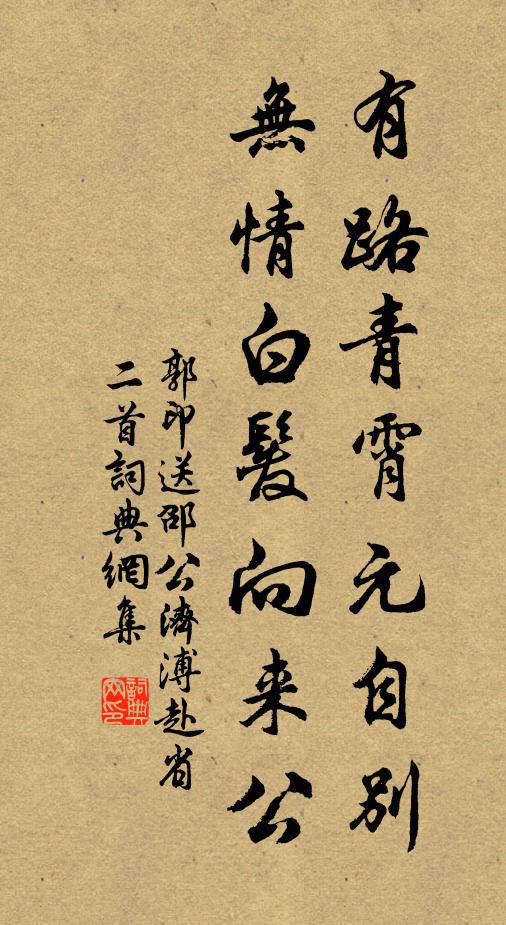 有路青霄元自别
無情白髮向来公
郭印送邵公濟溥赴省
二首詞典網集
詞典
网印